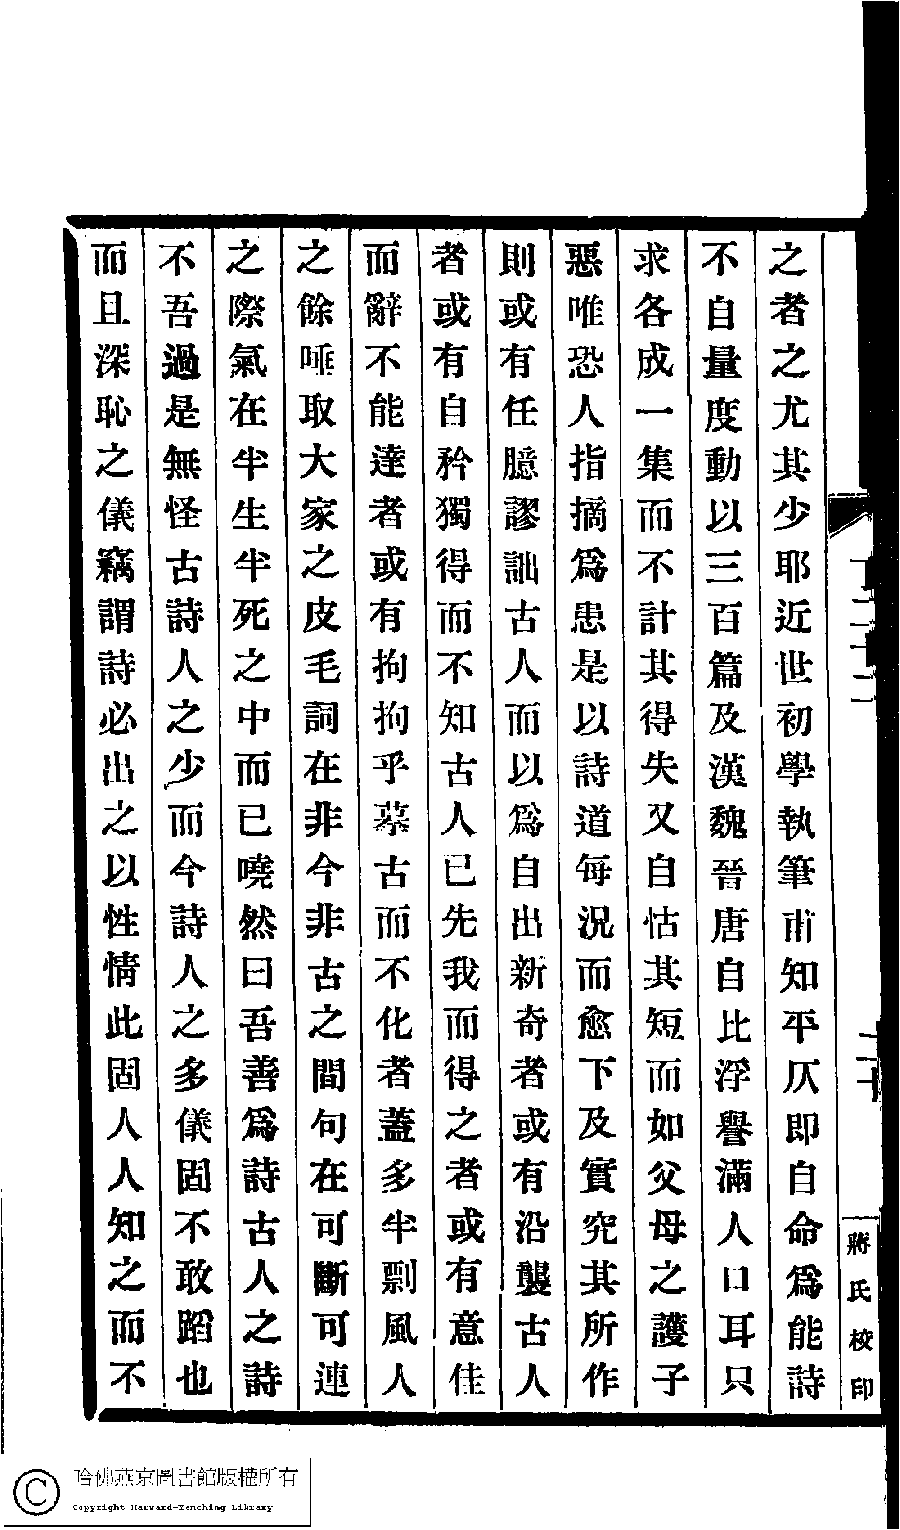 之者之尤其少耶近世初學執筆甫知平仄即自命爲能詩
不自量度動以三百篇及漢魏晉唐自比浮譽滿人口耳只
求各成一集而不計其得失又自怙其短而如父母之護子
惡唯恐人指摘爲患是以詩道每況而愈下及實究其所作
則或有任臆謬詘古人而以爲自出新奇者或有沿襲古人
者或有自矜獨得而不知古人已先我而得之者或有意佳
而辭不能達者或有拘拘乎摹古而不化者蓋多半剽風人
之餘唾取大家之皮毛詞在非今非古之間句在可斷可連
之際氣在半生半死之中而已嘵然曰吾善爲詩古人之詩
不吾過是無怪古詩人之少而今詩人之多儀固不敢蹈也
而且深恥之儀竊謂詩必出之以性情此固人人知之而不
蔣氏校印
哈佛燕京圖書館版權所有
Copyright Harvard-Yenching Library